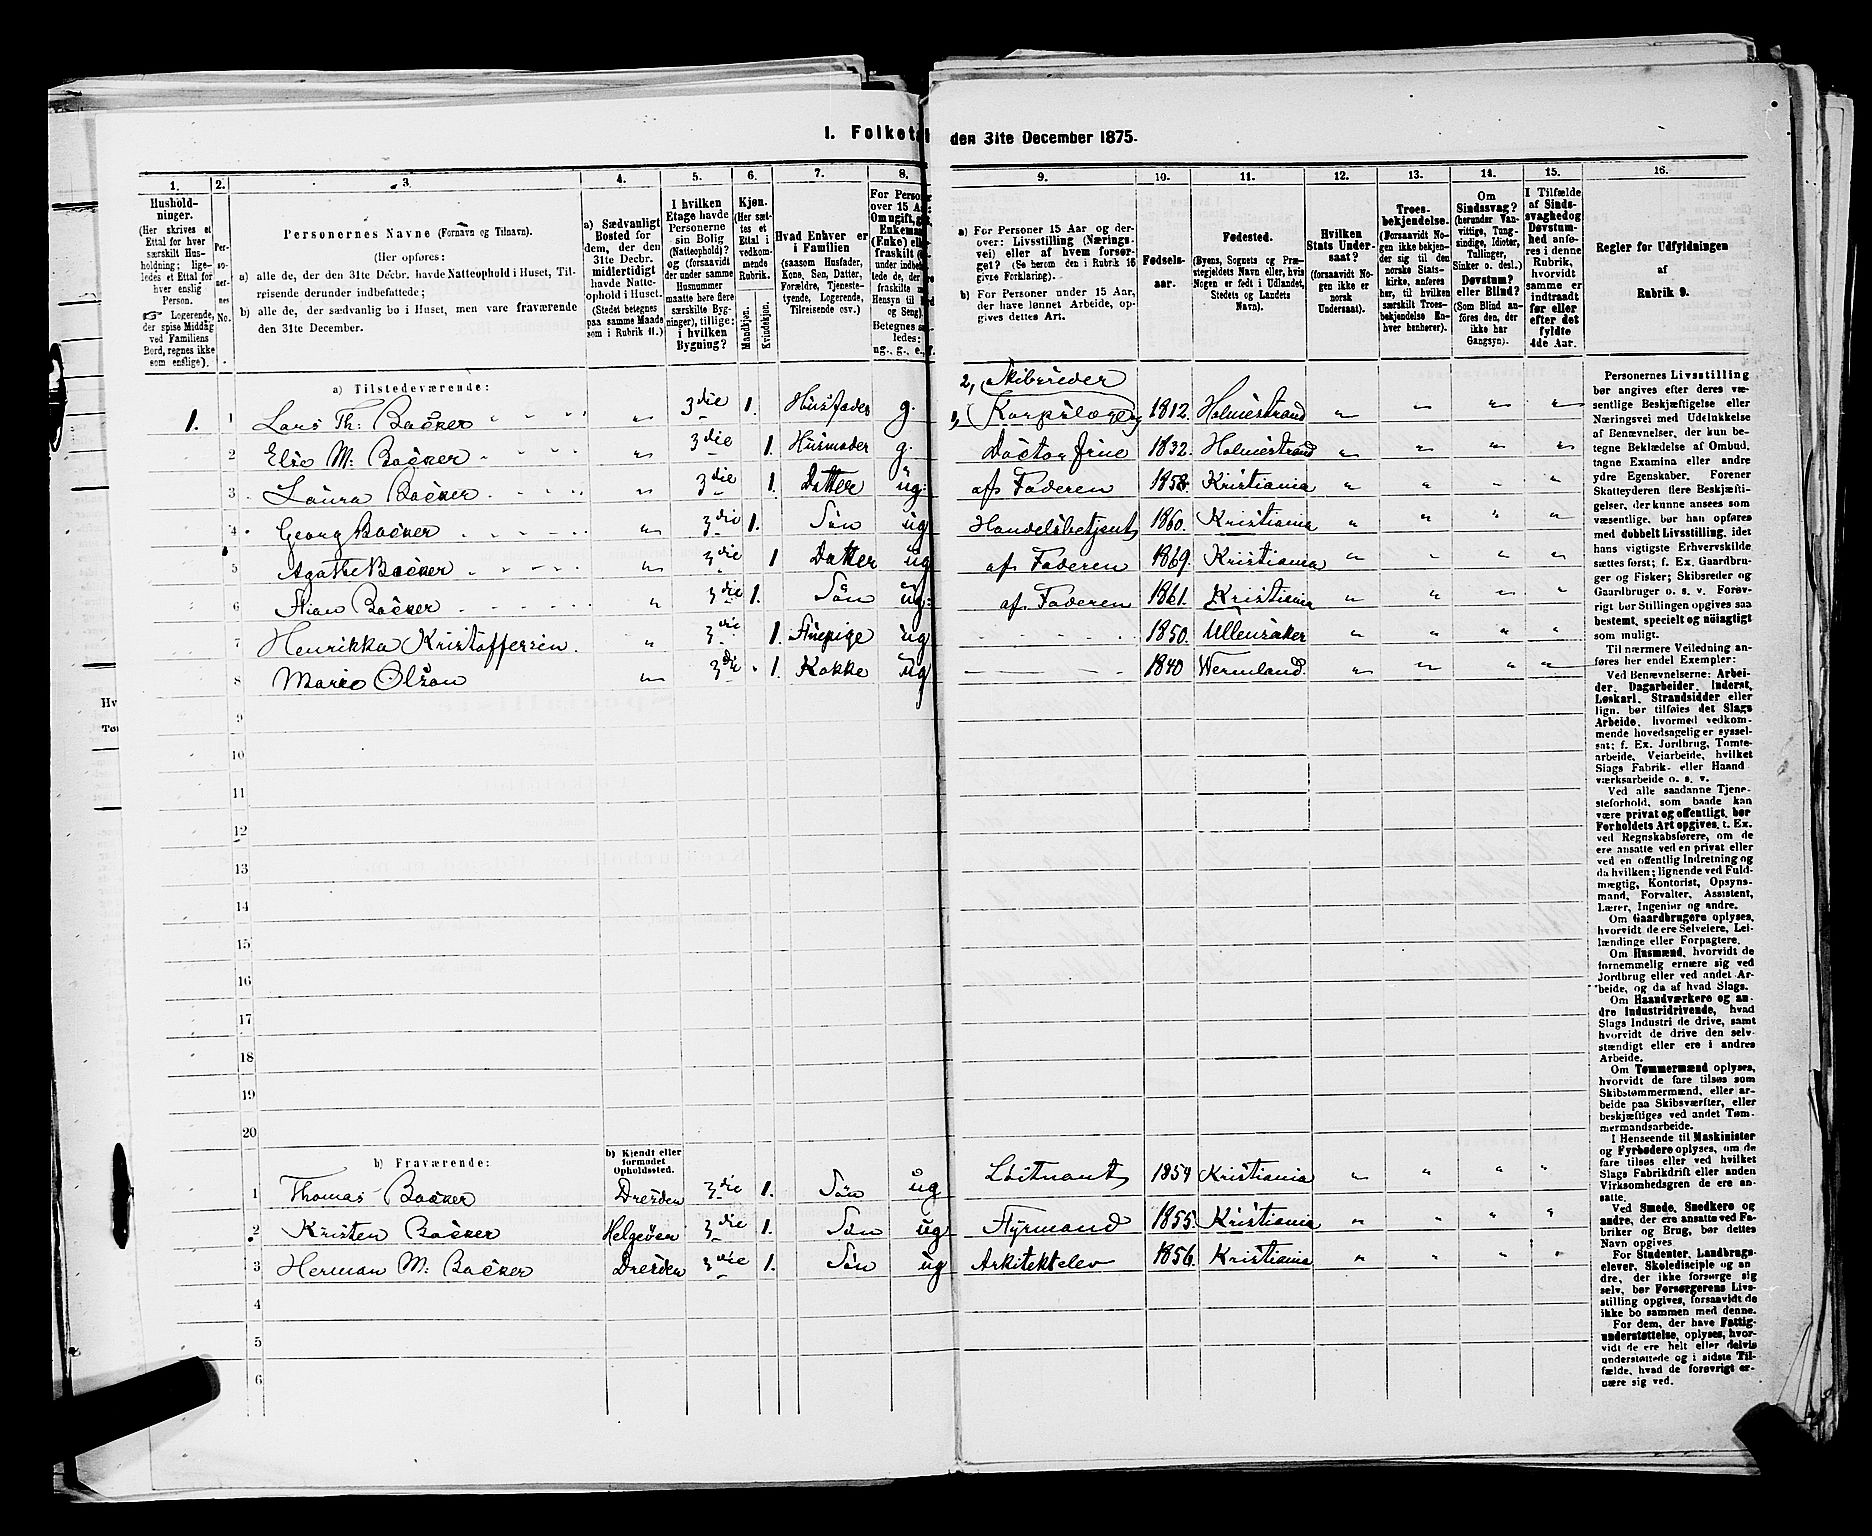 I. Folketæ den 31te December 1875.
1.
Hushold-
ninger.
(Her skrives et
Ettal for hver
særskilt Hus-
holdning; lige-
ledes et Ettal for
hver enslig
Person.
Logerende,
der spise Middag
ved Familiens
Bord, regnes ikke
som enslige).
2.
Per-
so-
ner-
nes
No.
3.
Personernes Navne (Fornavn og Tilnavn).
(Her opføres:
a) alle de, der den 31te Decbr. havde Natteophold i Huset, Til-
reisende derunder indbefattede;
b) alle de, der sædvanlig bo i Huset, men vare fraværende
den 31te December.
4.
a) Sædvanligt
Bosted for
dem, der den
31te Decbr.
midlertidigt
havde Natte-
ophold i Huset.
(Stedet betegnes
paa samme Maade
som i Rubrik 11.)
5.
I hvilken
Etage havde
Personerne
sin Bolig
(Natteophold)?
og (forsaavidt
der under samme
Husnummer
maatte høre flere
særskilte Byg-
ninger), tillige:
i hvilken
Bygning?
6.
Kjøn.
(Her sæt-
tes et
Ettal i
vedkom-
mende
Rubrik.
Mandkjøn.
Kvindekjøn.
7.
Hvad Enhver er
i Familien
(saasom Husfader,
Kone, Søn, Datter,
Forældre, Tjeneste-
tyende, Logerende,
Tilreisende osv.)
8.
9.
a) For Personer 15 Aar og der-
over: Livsstilling (Nærings-
vei) eller af hvem forsør-
get? (Se herom den i Rubrik 16
givne Forklaring).
b) For Personer under 15 Aar,
der have lønnet Arbeide, op-
gives dettes Art.
10.
Fødsels-
aar.
11.
Fødested.
(Byens, Sognets og Præ-
stegjeldets Navn eller, hvis
Nogen er født i Udlandet,
Stedets og Landets
Navn).
12.
Hvilken
Stats Under-
saat?
(forsaavidt No-
gen ikke er
norsk
Undersaat).
13.
Troes-
bekjendelse.
(Forsaavidt No-
gen ikke bekjen-
der sig til den
norske Stats-
kirke, anføres
her, til hvilken
særskilt Troes-
bekjendelse En-
hver henhører).
14.
Om
Sindssvag?
(herunder Van-
vittige, Tung-
sindige, Idioter,
Tullinger,
Sinker o. desl.)
Døvstum?
eller Blind?
(Som Blind an-
føres den, der
ikke har
Gangsyn).
15.
I Tilfælde
af Sinds-
svaghed og
Døvstum-
hed anfø-
res i denne
Rubrik,
hvorvidt
samme er
indtraadt
før eller
efter det
fyldte
4de Aar.
16.
Regler for Udfyldningen
af
Rubrik 9.
a) Tilstedeværende:
2, Skibsreder
1. 1 Lars Th: Backer " 3die 1. Husfader g. 1, Korpslæge 1812. Holmestrand " " " "
2 Else M. Backer " 3die 1. Husmoder g. Doctorfrue 1832. Holmestrand " " " "
3 Laura Backer " 3die 1. Datter ug. af Faderen 1858. Kristiania " " " "
4 Georg Backer " 3die 1. Sön ug Handelsbetjent 1860. Kristiania " " " "
5 Agathe Backer " 3die 1 Datter ug af Faderen 1869. Kristiania " " " "
6 Stian Backer " 3die 1. Sön ug: af Faderen 1861. Kristiania " " " "
7 Henrikka Kristoffersen. " 3die 1. Stuepige ug - 1850. Ullensaker " " " "
8 Marie Olson " 3die 1. Kokke ug - 1840 Wermland. " " " "
9
10
11
12
13
14
15
16
17
18
19
20
b) Fraværende:
b) Kjendt eller
formodet
Opholdssted.
1 Thomas Backer Dresden 3die 1. Sön ug Löitnant 1854 Kristiania " " " "
2 Kristen Backer 3die 1. Sön ug Styrmand 1855. Kristiania " " " "
3 Herman M: Backer Dresden 3die 1. Sön ug Arkitektelev 1856. Kristiania " " " "
4
5
6
Personernes Livsstilling
bør angives efter deres væ-
sentlige Beskjæftigelse eller
Næringsvei med Udelukkelse
af Benævnelser, der kun be-
tegne Beklædelse af Ombud,
tagne Examina eller andre
ydre Egenskaber. Forener
Skatteyderen flere Beskjæfti-
gelser, der kunne ansees som
væsentlige, bør han opføres
med dobbelt Livsstilling, idet
hans vigtigste Erhvervskilde
sættes først; f. Ex. Gaardbru-
ger og Fisker; Skibsreder og
Gaardbruger o. s. v. Forøv-
rigt bør Stillingen opgives saa
bestemt, specielt og nöiagtigt
som muligt.
Til nærmere Veiledning an-
føres her endel Exempler:
Ved Benævnelserne: Arbei-
der, Dagarbeider, Inderst,
Løskarl, Strandsidder eller
lign. bør tilføies det Slags
Arbeide, hvormed vedkom-
mende hovedsagelig er syssel-
sat; f. Ex. Jordbrug, Tomte-
arbeide, Veiarbeide, hvilket
Slags Fabrik- eller Haand
værksarbeide o. s. v.
Ved alle saadanne Tjene-
steforhold, som baade kan
være privat og offentligt, bør
Forholdets Art opgives, t. Ex.
ved Regnskabsførere, om de
ere ansatte ved en privat eller
ved en offentlig Indretning og
da hvilken; lignende ved Fuld-
mægtig, Kontorist, Opsyns-
mand, Forvalter, Assistent,
Lærer, Ingeniør og andre.
Om Gaardbrugere oplyses,
hvorvidt de ere Selveiere, Lei-
lændinge eller Forpagtere.
Om Husmænd, hvorvidt de
fornemmelig ernære sig ved
Jordbrug eller ved andet Ar-
beide, og da af hvad Slags.
Om Haandværkere og an-
dre Industridrivende, hvad
Slags Industri de drive, samt
hvorvidt de drive den selv-
stændigt eller ere i andres
Arbeide.
Om Tømmermænd oplyses,
hvorvidt de fare tilsøs som
Skibstømmermænd, eller ar-
beide paa Skibsværfter, eller
beskjæftiges ved andet Tøm-
mermandsarbeide.
I Henseende til Maskinister
og Fyrbødere oplyses, om de
fare tilsøs eller ved hvilket
Slags Fabrikdrift eller anden
Virksomhedsgren de ere an-
satte.
Ved Smede, Snedkere og
andre, der ere ansatte ved Fa-
briker og Brug, bør dettes
Navn opgives.
For Studenter, Landbrugs-
elever, Skoledisciple og an-
dre, der ikke forsørge sig
selv, bør Forsørgerens Livs-
stilling opgives, forsaavidt de
ikke bo sammen med denne.
For dem, der have Fattig-
understøttelse, oplyses, hvor-
vidt de ere helt eller delvis
understøttede og i sidste Til-
fælde, hvad de forøvrigt er-
nære sig ved.